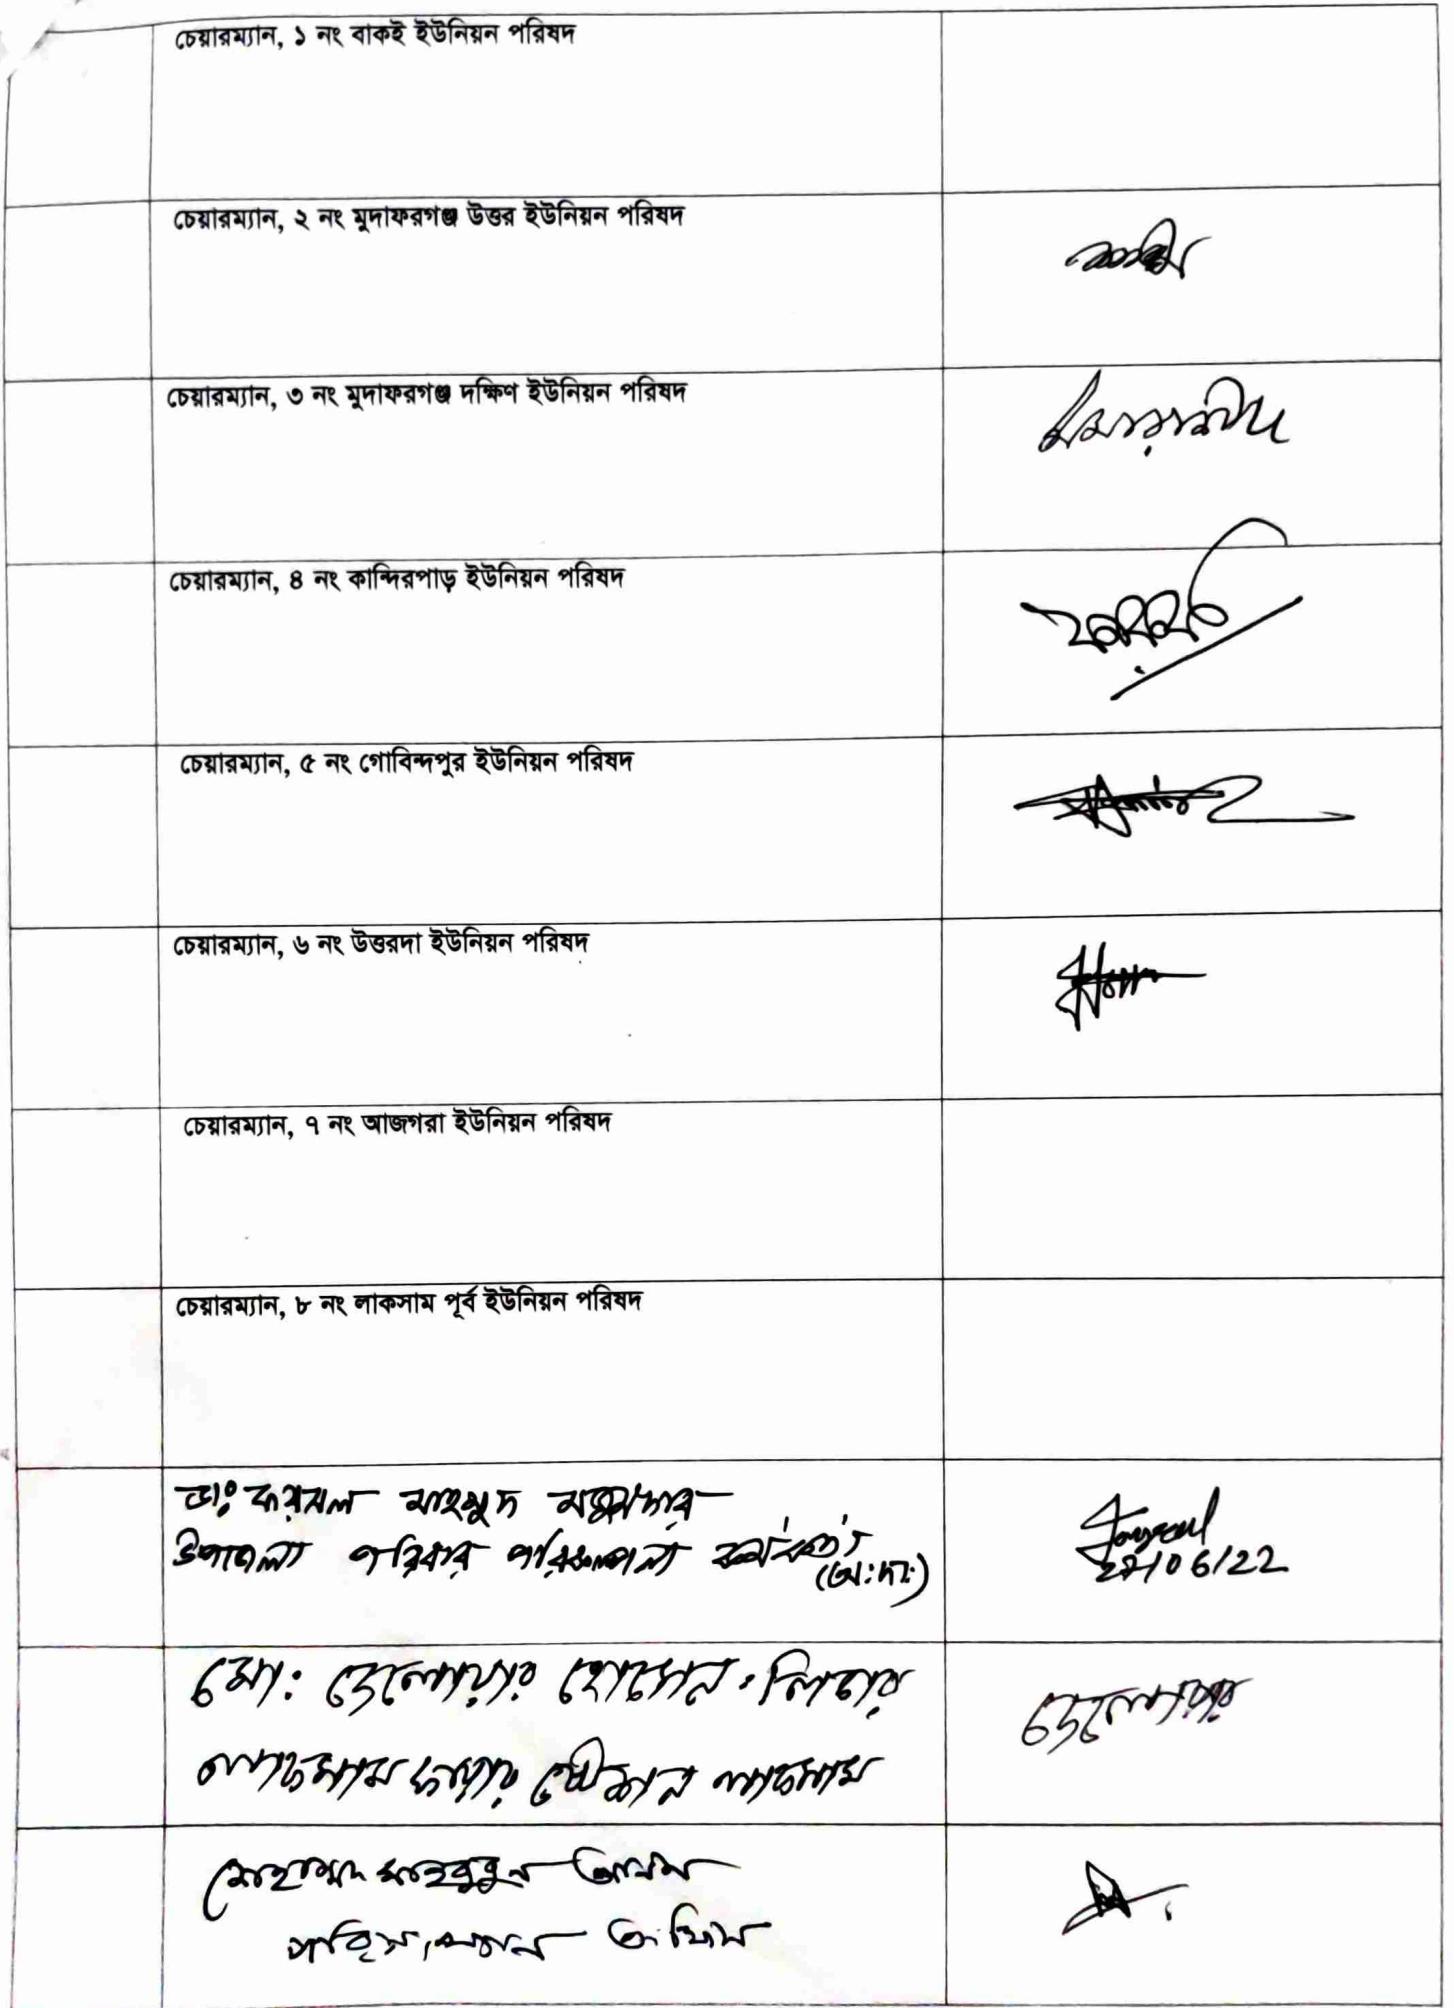 চেয়ারম্যান, ১ নং বাকই ইউনিয়ন পরিষদ
চেয়ারম্যান, ২ নং মুদাফরগঞ্জ উত্তর ইউনিয়ন পরিষদ
চেয়ারম্যান, ৩ নং মুদাফরগঞ্জ দক্ষিণ ইউনিয়ন পরিষদ
চেয়ারম্যান, ৪ নং কান্দিরপাড় ইউনিয়ন পরিষদ
চেয়ারম্যান, ৫ নং গোবিন্দপুর ইউনিয়ন পরিষদ
চেয়ারম্যান, ৬ নং উত্তরদা ইউনিয়ন পরিষদ
চেয়ারম্যান, ৭ নং আজগরা ইউনিয়ন পরিষদ
চেয়ারম্যান, ৮ নং লাকসাম পূর্ব ইউনিয়ন পরিষদ
ডাঃ মাহমুদ মজুমদার
উপজেলা পরিবার পরিকল্পনা কর্মকর্তা
(অ:দা:)
মো: দেলোয়ার হোসেন, লিডার
দেলোয়ার
লাকসাম ফায়ার স্টেশন লাকসাম
মোহাম্মদ মাহবুবুল আলম
পরিসংখ্যান অফিস